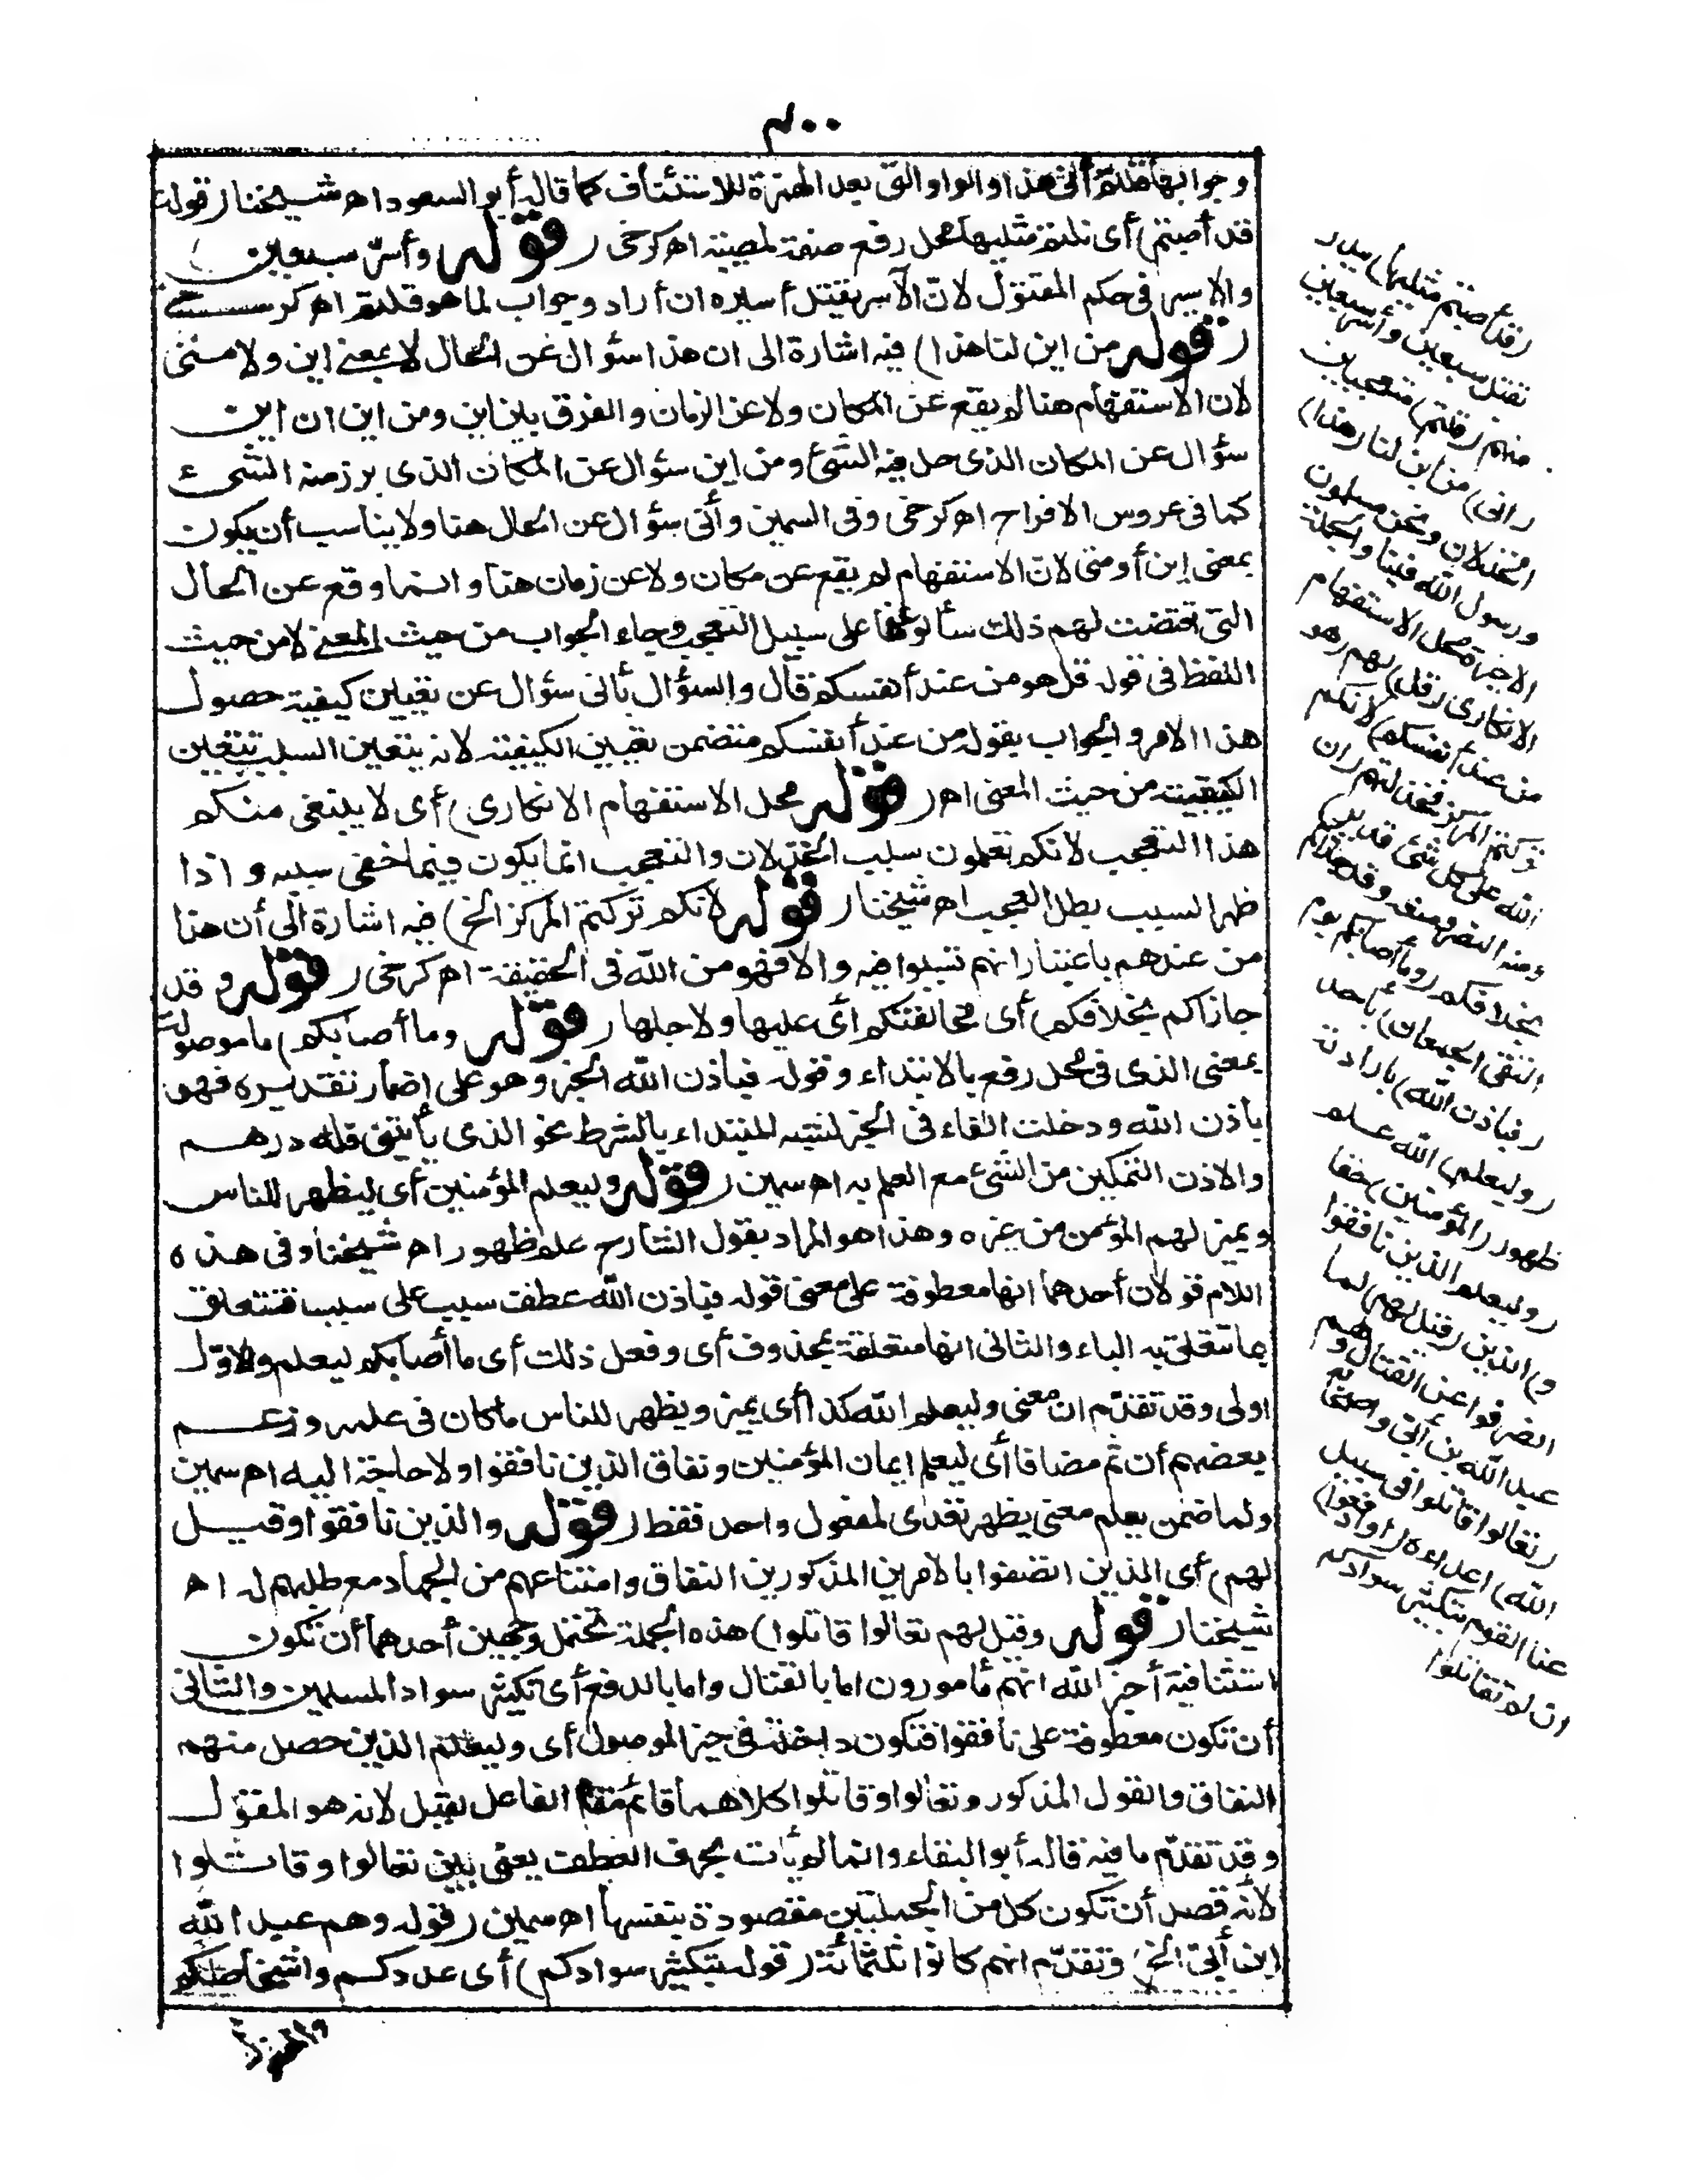 ٤٠٠
وجوابها قلتم أنى هذا والواو التى بعد الهمزة للاستئناف كما قاله أبو السعود اه شيخنا (قوله
قد أصبتم) أى نلتم مثليها محل رفع صفة لمصيبة اه كرخى (قوله وأسر سبعين)
والاسير فى حكم المقتول لان الآسر يقتل أسيره ان أراد وجواب لما هو قلتم اه كرخى
(قوله من اين لنا هذا) فيه اشارة الى ان هذا سؤال عن الحال لا بمعنى اين ولا متى
لان الاستفهام هنا لم يقع عن المكان ولا عن الزمان والفرق بين اين ومن اين ان اين
سؤال عن المكان الذى حل فيه الشئ ومن اين سؤال عن المكان الذى برز منه الشئ
كما فى عروس الافراح اه كرخى وفى السمين وأنى سؤال عن الحال هنا ولا يناسب أن يكون
بمعنى اين أو متى لان الاستفهام لم يقع عن مكان ولا عن زمان هنا وانما وقع عن الحال
التى اقتضت لهم ذلك سألوا عنها على سبيل التعجب وجاء الجواب من حيث المعنى لا من حيث
اللفظ فى قوله قل هو من عند أنفسكم قال والسؤال بأنى سؤال عن تعيين كيفية حصول
هذا الامر والجواب بقوله من عند أنفسكم متضمن تعيين الكيفية لانه بتعين السبب تتعين
الكيفية من حيث المعنى اه (قوله محل الاستفهام الانكارى) أى لا ينبغى منكم
هذا التعجب لانكم تعلمون سبب الخذلان والتعجب انما يكون فيما خفى سببه واذا
ظهر السبب بطل العجب اه شيخنا (قوله لانكم تركتم المركز الخ) فيه اشارة الى أن هذا
من عندهم باعتبار انهم تسببوا فيه والا فهو من الله فى الحقيقة اه كرخى (قوله وقد
جازاكم بخلافكم) أى مخالفتكم أى عليها ولاجلها (قوله وما أصابكم) ما موصولة
بمعنى الذى فى محل رفع بالابتداء وقوله فباذن الله الخبر وهو على اضمار تقديره فهو
بأذن الله ودخلت الفاء فى الخبر لشبه المبتداء بالشرط نحو الذى يأتينى فله درهم
والاذن التمكين من الشئ مع العلم به اه سمين (قوله وليعلم المؤمنين) أى ليظهر للناس
ويميز لهم المؤمن من غيره وهذا هو المراد بقول الشارح علم ظهور اه شيخنا وفى هذه
اللام قولان أحدهما انها معطوفة على معنى قوله فباذن الله عطف سبب على سبب فتتعلق
بما تتعلق به الباء والثانى انها متعلقة بمحذوف أى وفعل ذلك أى ما أصابكم ليعلم والاول
اولى وقد تقدم ان معنى وليعلم الله كذا أى يميز ويظهر للناس ما كان فى علمه وزعم
بعضهم أن ثم مضافا أى ليعلم ايمان المؤمنين ونفاق الذين نافقوا ولا حاجة اليه اه سمين
ولما ضمن يعلم معنى يظهر تعدى لمفعول واحد فقط (قوله والذين نافقوا وقيل
لهم) أى الذين اتصفوا بالامرين المذكورين النفاق وامتناعهم من الجهاد مع طلبهم له اه
شيخنا (قوله وقيل لهم تعالوا قاتلوا) هذه الجملة تحتمل وجهين أحدهما أن تكون
استئنافية أخبر الله انهم مأمورون اما بالقتال واما بالدفع أى تكثير سواد المسلمين والثانى
أن تكون معطوفة على نافقوا فتكون داخلة فى حيز الموصول أى وليعلم الذين حصل منهم
النفاق والقول المذكور وتعالوا وقاتلوا كلاهما قائم مقام الفاعل لقيل لانه هو المقول
وقد تقدم ما فيه قاله أبو البقاء وانما لم يأت بحرف العطف يعنى بين تعالوا وقاتلوا
لانه قصد أن تكون كل من الجملتين مقصودة بنفسها اه سمين (قوله وهم عبد الله
ابن أبى الخ) وتقدم انهم كانوا ثلثمائة (قوله بتكثير سوادكم) أى عددكم وأشخاصكم
(قد أصبتم مثليها) ببدر
بقتل سبعين وأسر سبعين
منهم (قلتم) متعجبين
(أنى) من اين لنا (هذا)
الخذلان ونحن مسلمون
ورسول الله فينا والجملة
الاخيرة محل الاستفهام
الانكارى (قل) لهم (هو
من عند أنفسكم) لانكم
تركتم المركز فخذلتم (ان
الله على كل شئ قدير)
ومنه النصر ومنعه وقد جازاكم
بخلافكم (وما أصابكم يوم
التقى الجمعان) بأحد
(فباذن الله) بارادته
(وليعلم) الله علم
ظهور (المؤمنين) حقا
(وليعلم الذين نافقوا
و) الذين (قيل لهم) لما
انصرفوا عن القتال وهم
عبد الله بن أبى وأصحابه
(تعالوا قاتلوا فى سبيل
الله) أعداءه (أو ادفعوا)
عنا القوم بتكثير سوادكم
ان لم تقاتلوا